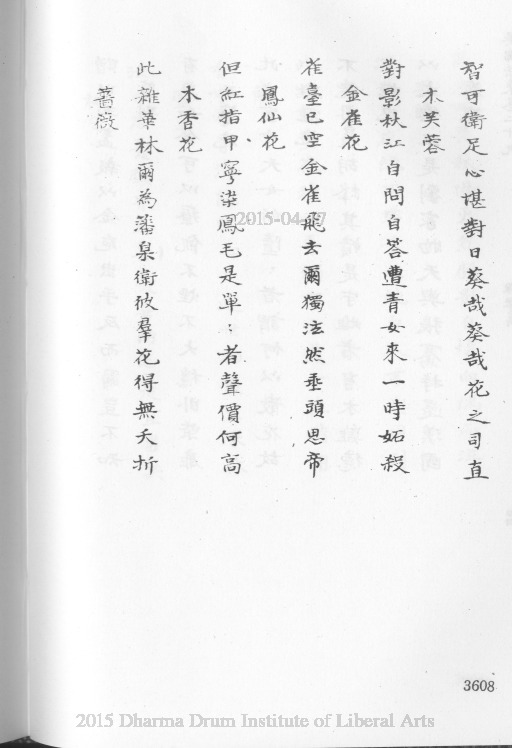 智可衛足心堪對日葵哉葵哉花之司直
木芙蓉
對影秋江自問自答遭青女來一時妬殺
金雀花
雀臺已空金雀飛去爾獨泫然垂頭思帝
鳳仙花
但紅指甲寧染鳳毛是單〻者聲價何高
木香花
此雜華林爾為藩臬衛彼羣花得無夭折
薔薇
2015-04-17
3608
2015 Dharma Drum Institute of Liberal Arts